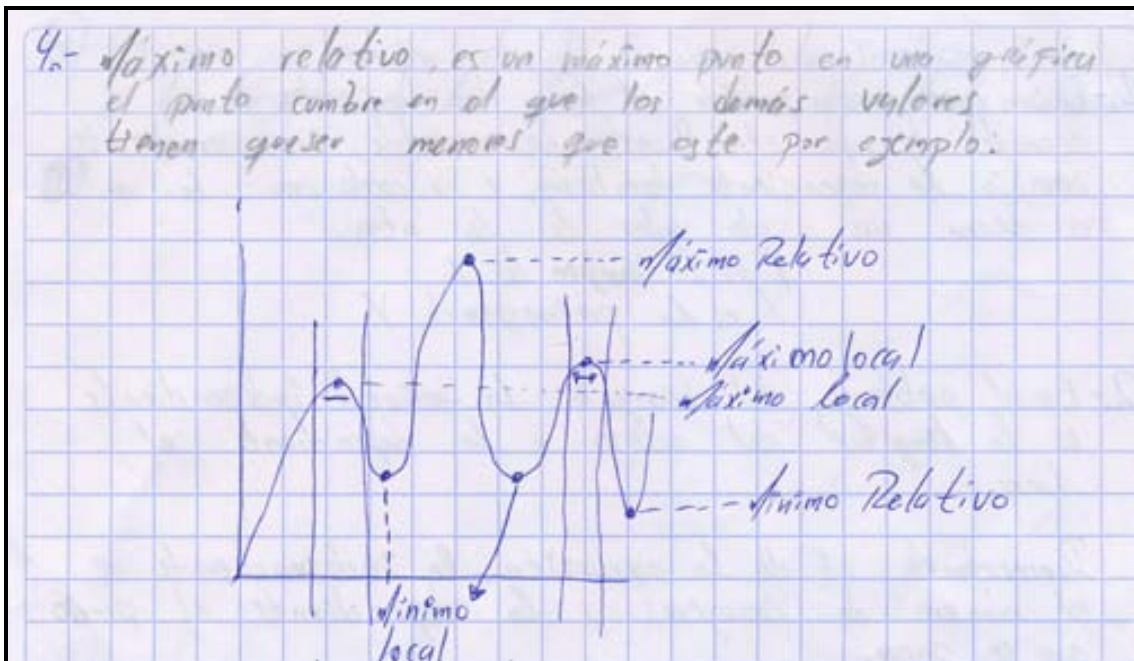 4.- Máximo relativo, es un máximo punto en una gráfica
el punto cumbre en el que los demás valores
tienen queser menores que este por ejemplo:
Máximo Relativo
Máximo local
Máximo local
Mínimo Relativo
Mínimo
local